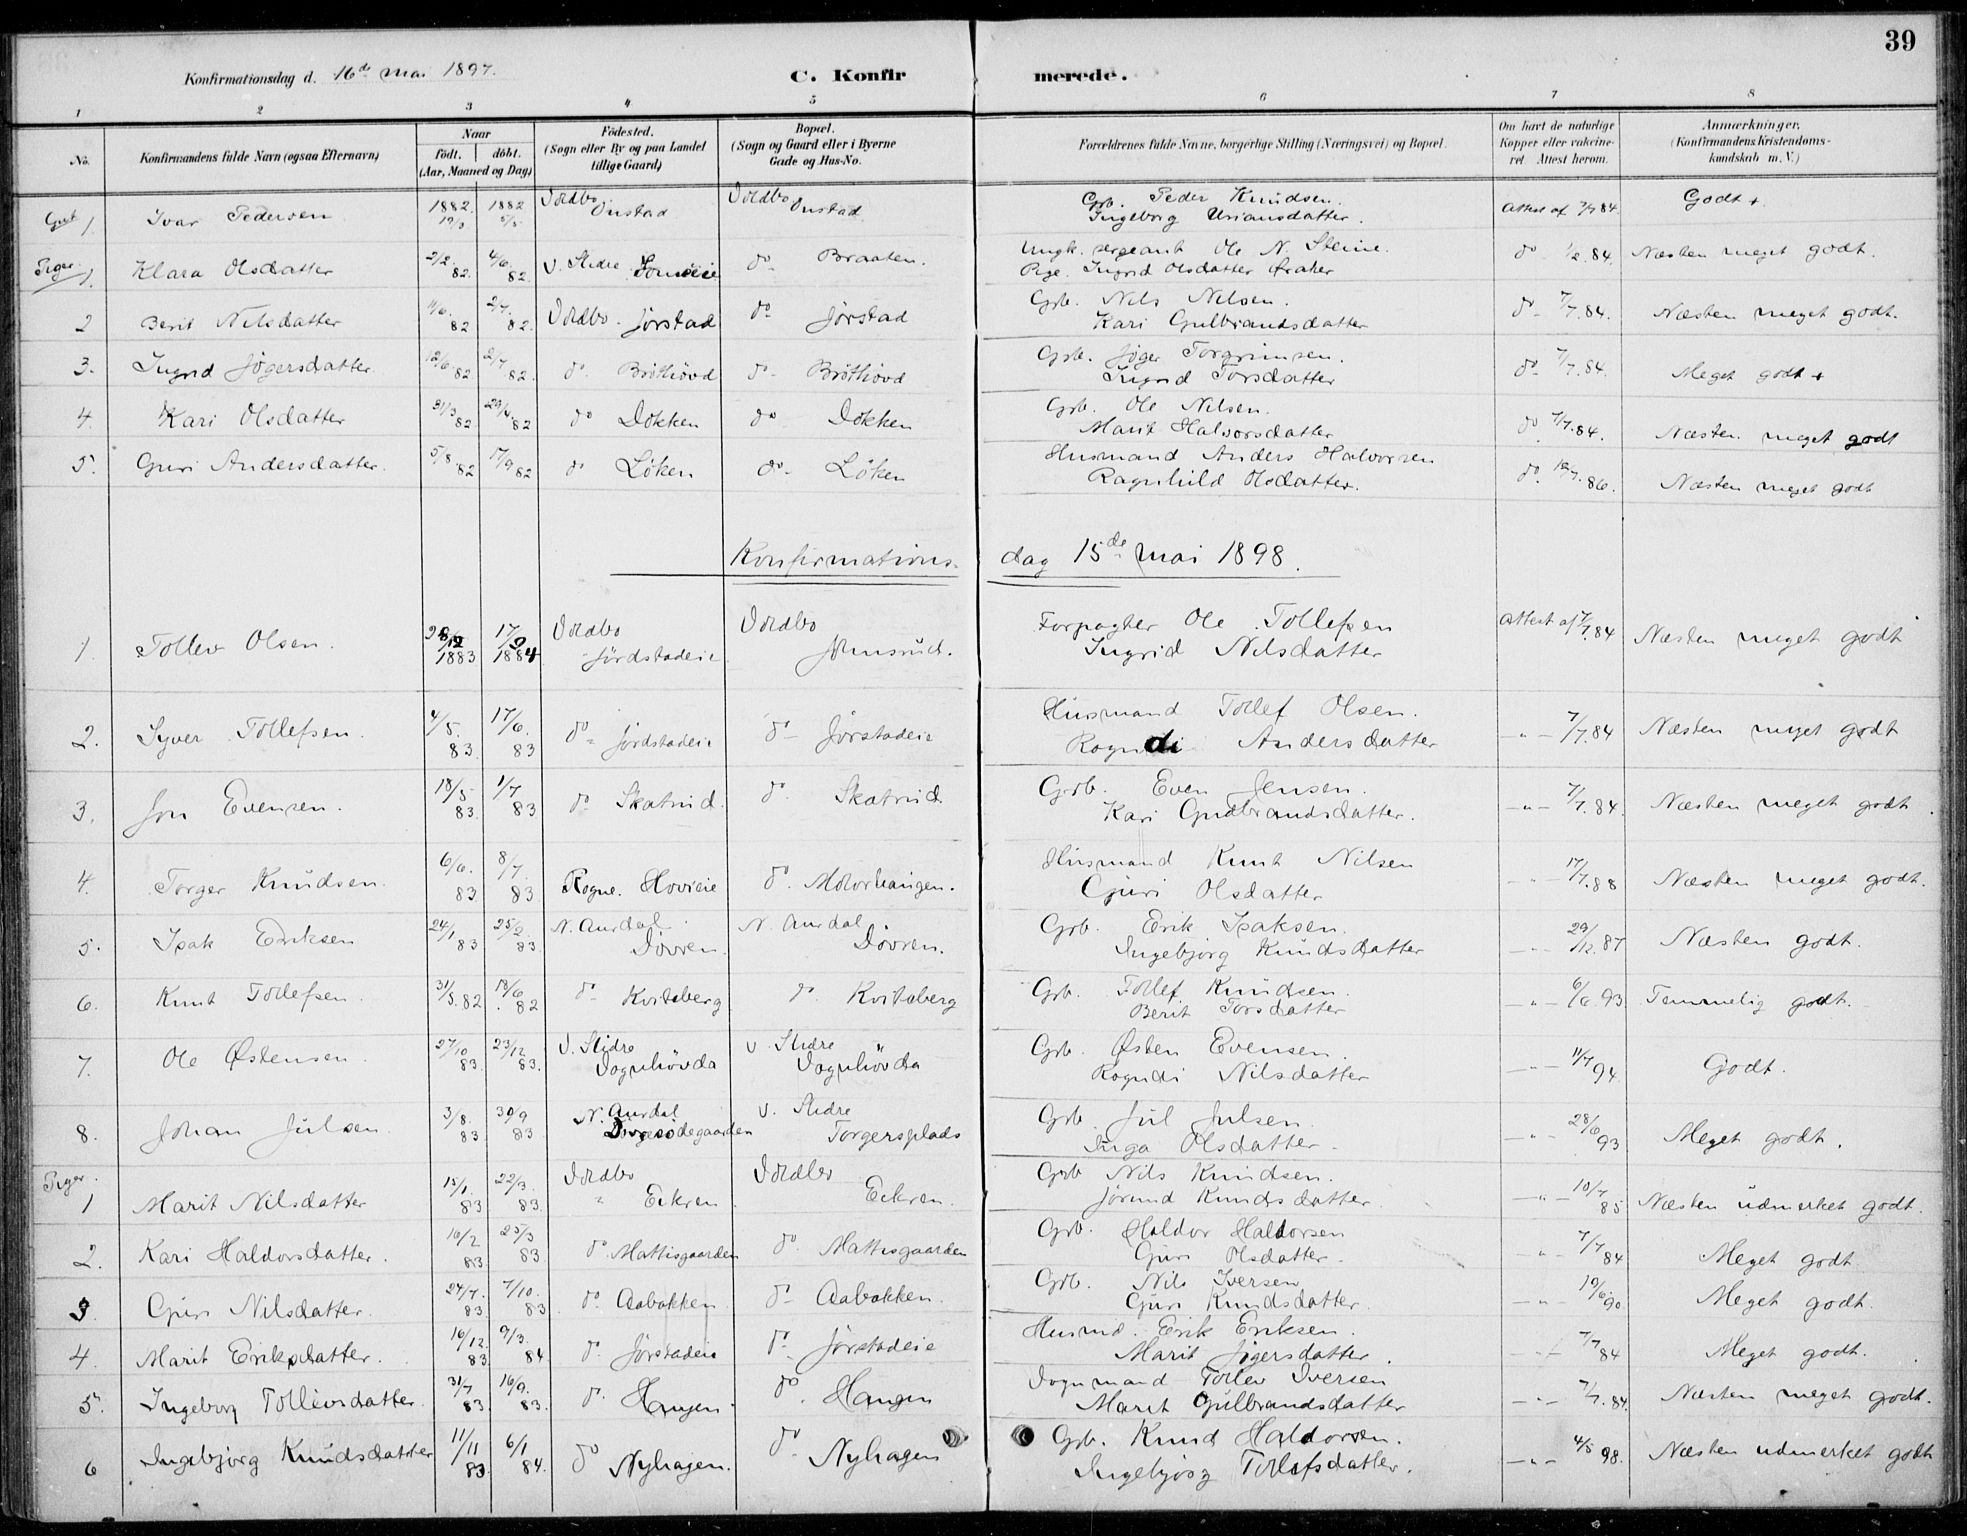 39
Konfirmationsdag d. 16de mai 1897. C. Konfirmerede.
1 2 3 4 5 6 7 8
No. Konfirmandens fulde Navn (ogsaa Efternavn) Naar født. døbt. (Aar, Maaned og Dag) Födested. (Sogn eller By og paa Landet tillige Gaard) Bopæl. (Sogn og Gaard eller i Byerne Gade og Hus-No. Forældrenes fulde Navne, borgerlige Stilling (Næringsvei) og Bopæl. Om havt de naturlige Kopper eller vakcineret. Attest herom. Anmærkninger. (Konfirmandens Kristendomskundskab m. V.)
1 Ivar Pedersen 1882. 1882 Onstad Onstad Grb. Peder Knudsen. Ingeborg Uriansdatter. Attest af 7/7 84. Godt +
Piger 1. Klara Olsdatter 2/2 82. 4/6 82 V. Slidre do Braaten. Ungk. sergeant Ole N. Steine. Pige. Ingrid Olsdatter Øraker do 1/2 84. Næsten meget godt.
2 Berit Nilsdatter 11/6. 82 2/7. 82. Jørstad do Jørstad Grb. Nils Nilsen. Kari Gulbrandsdatter do 7/7.84. Næsten meget godt.
3. Ingrid Jøgersdatter 12/6.82 2/7.82. do Bröthövd do Bröthövd Grb. Jøger Torgrimsen. Ingrid Torsdatter do 7/7.84. Meget godt +
4. Kari Olsdatter 31/3 82. 29/4. 82 do Dokken do Dokken Grb. Ole Nilsen. Marit Halvorsdatter do 7/7.84. Næsten meget godt
5. Guri Andersdatter. 5/8 82 17/9 82 do Löken do Löken Husmand Anders Halvorsen Ragnhild Olsdatter. do 86. Næsten meget godt
Konfirmations- dag 15de mai 1898.
1. Tollev Olsen. 1883 17/ 1884 Jördstadeie Johnsrud. Forpagter Ole Tollefsen Ingrid Nilsdatter Attest af 7/7 84 Næsten meget godt
2. Syver Tollefsen. 4/5. 83. 17/6. 83 do Jördstadeie do Jørstadeie Husmand Tollef Olsen. Rogndi Andersdatter -"- 7/7 84 Næsten meget godt
3. Jon Evensen. 18/5 83. 1/7 83 do Skatrud. do Skatrud Grb. Even Jensen. Kari Gudbrandsdatter. -"- 7/7.84. Næsten meget godt
4. Torger Knudsen. 6/6. 83 8/7. 83 Rogne. Hovieie do. Molorhaugen. Husmand Knut Nilsen Guri Olsdatter -"- 17/7.88 Næsten meget godt.
5. Isak Eriksen 24/1 83 25/2. 83 N. Aurdal Dövren. N. Aurdal Dövren. Grb. Erik Isaksen. Ingebjörg Knudsdatter -"- 29/12.87 Næsten godt.
6. Knut Tollefsen. 31/5.82 18/6 82 do Kviteberg do Kviteberg Grb. Tollef Knudsen. Berit Torsdatter -"- 6/6.93 Temmelig godt.
7. Ole Østensen. 27/10. 83. 23/12. 83. V. Slidre Vognhövda V. Slidre Vognhövda Grb. Østen Evensen. Rogndi Nilsdatter -"- 11/7 94. Godt.
8. Johan Julsen. 3/8. 83 30/9 83 N. Aurdal V. Slidre Torgersplads Grb. Jul Julsen Inga Olsdatter -"- 28/6 93 Meget godt.
Piger. 1 Marit Nilsdatter 15/1. 83 22/3. 83. Eekren Eekren. Grb Nils Knudsen. Jörund Knudsdatter. -"- 10/7 85 Næsten udmerket godt.
2. Kari Haldorsdatter. 16/2 83 25/3 83 do. Mattisgaarden do. Mattisgaarden Grb. Haldor Haldorsen Guri Olsdatter -"- 7/7 84 Meget godt
3. Guri Nilsdatter. 24/7. 83. 7/10. 83 do. Aabakken. do Aabakken. Grb. Nils Iversen Guri Knudsdatter. -"- 19/6 90. Meget godt.
4. Marit Eriksdatter. 16/12. 83. 9/3. 84 do. Jörstadeie do. Jörstadeie Husmd. Erik Eriksen. Marit Jøgersdatter. -"- 7/7 84 Meget godt.
5. Ingeborg Tollevsdatter. 31/7 83. 16/9. 83. do. Haugen do. Haugen Tollev Iversen Marit Gulbrandsdatter -"- 7/7.84. Næsten meget godt.
6 Ingebjörg Knudsdatter 11/11 83. 6/1 84. do Nyhagen. do Nyhagen Grb. Knud Haldorsen. Ingebjörg Tollefsdatter. -"- 4/5 98. Næsten udmerket godt